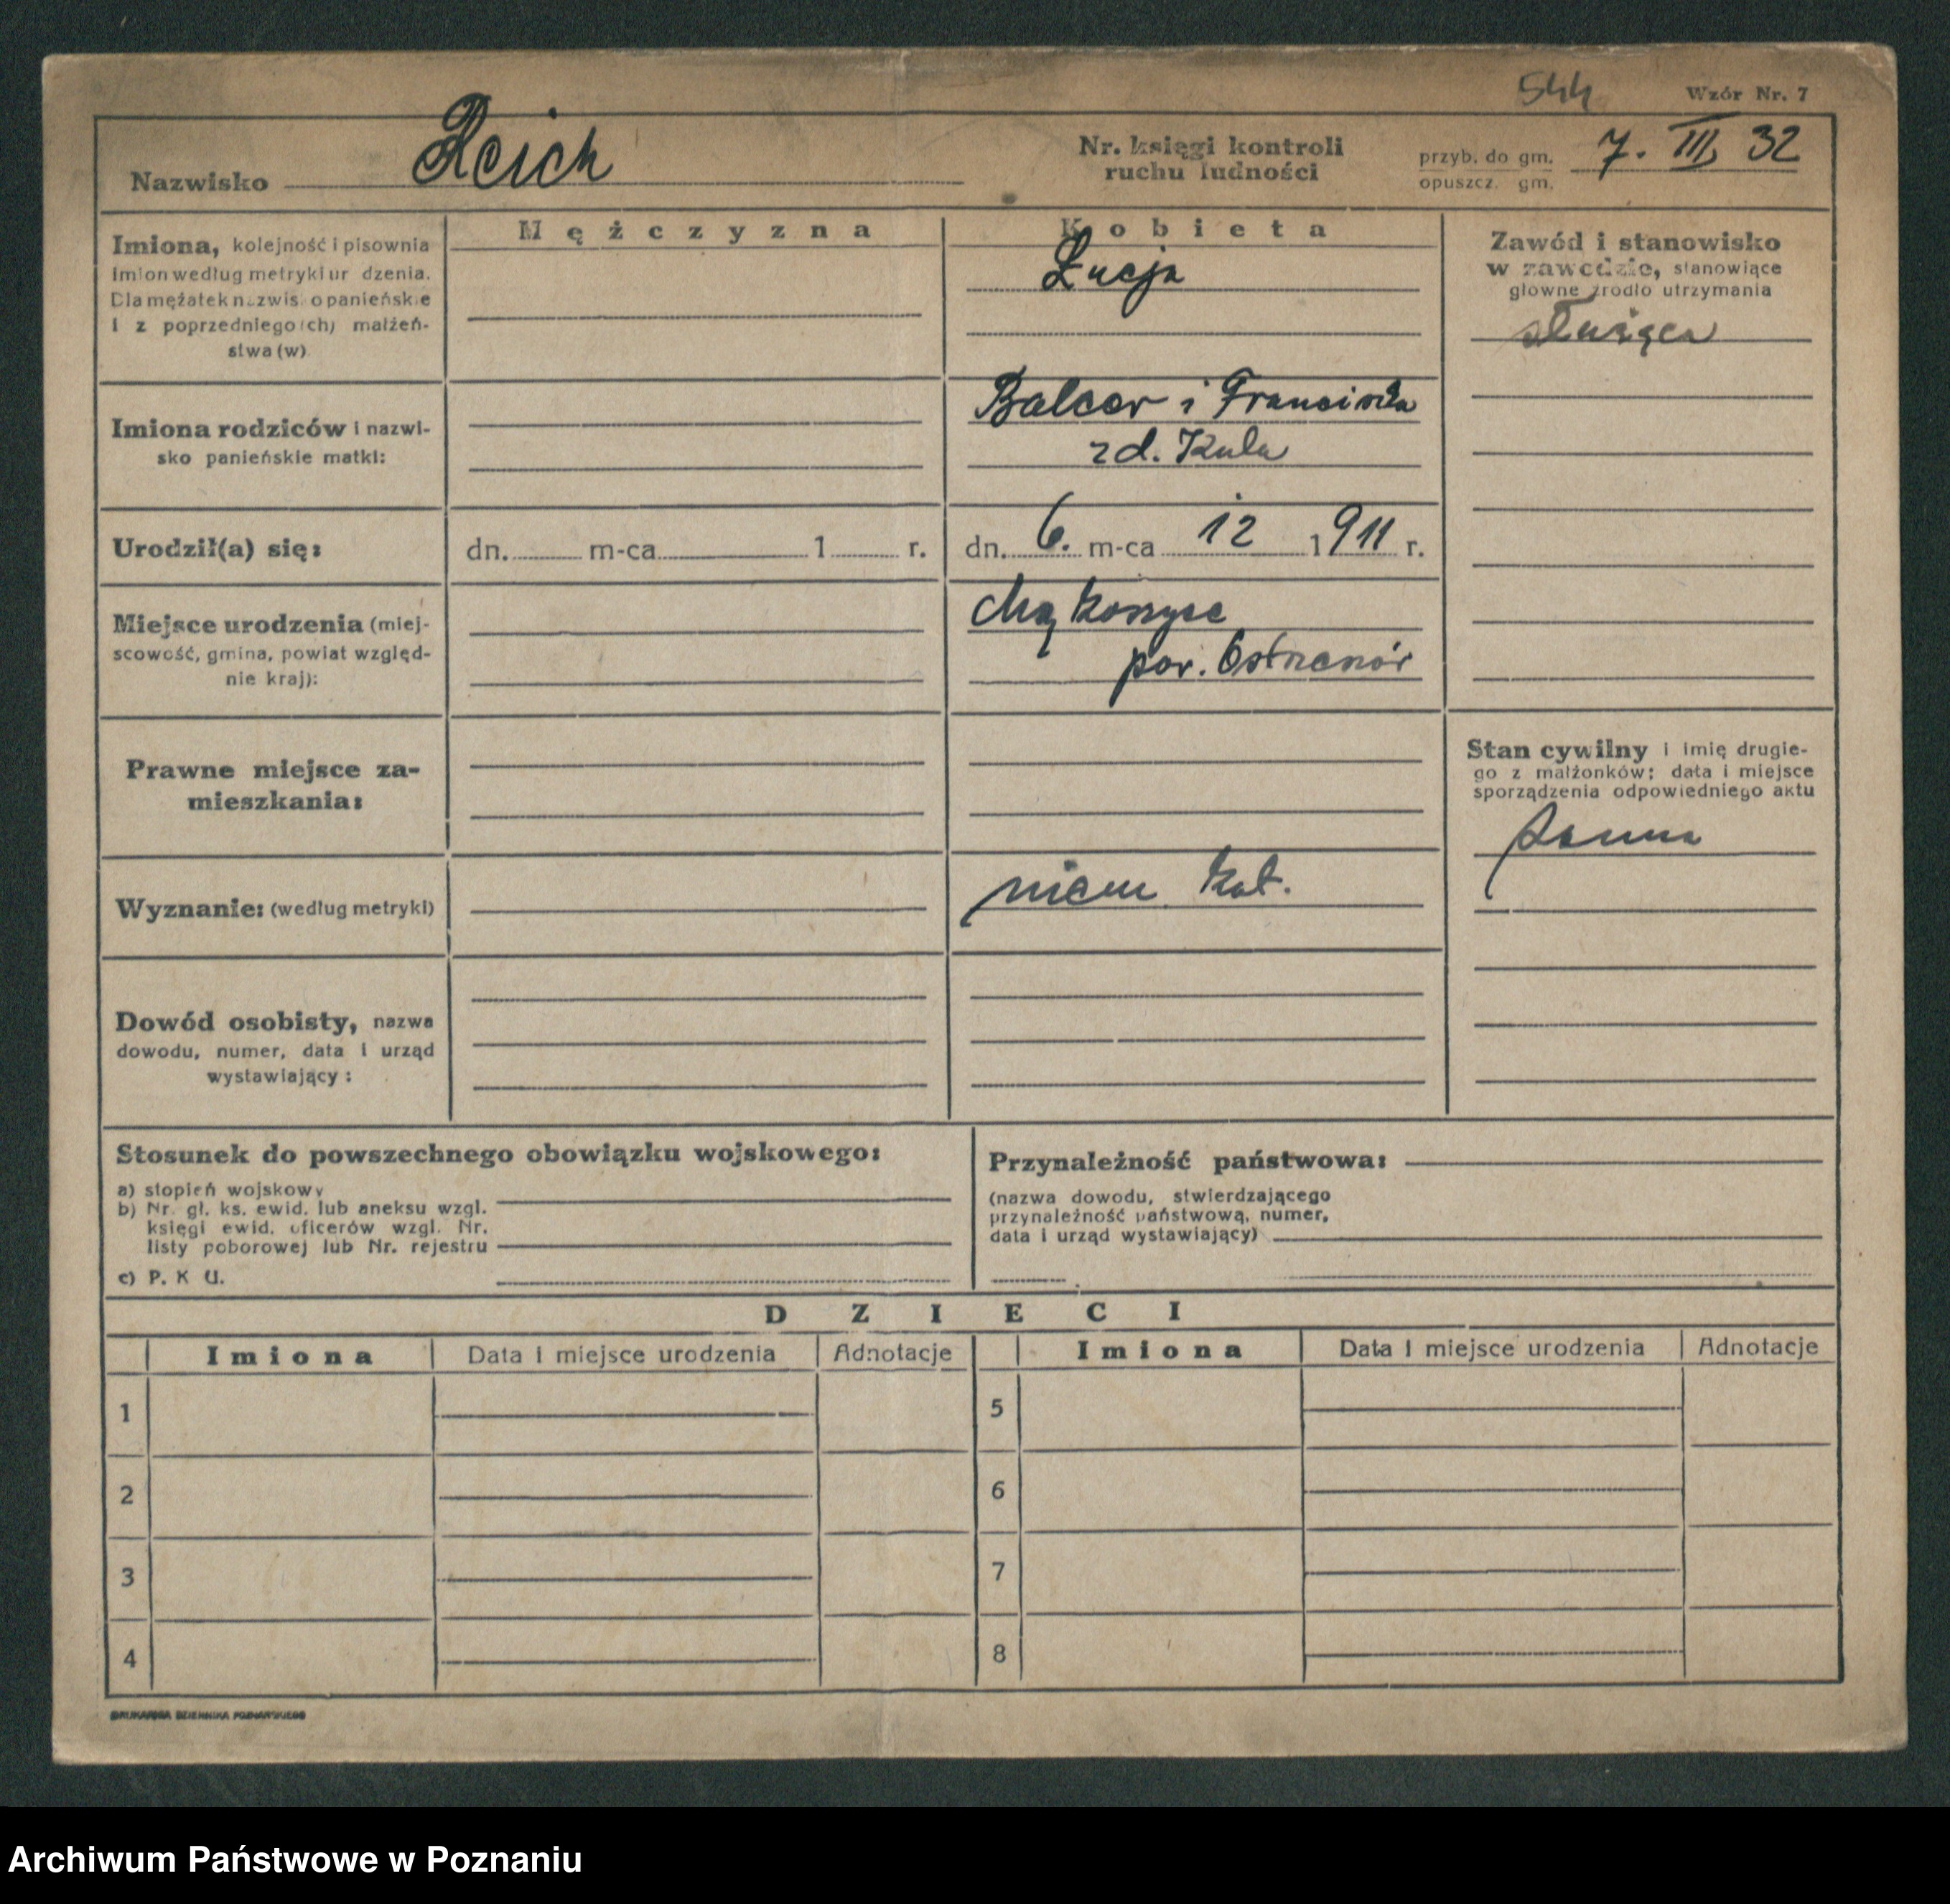 544 Wzór Nr. 7
Nazwisko Reich
Nr. księgi kontroli
ruchu ludności
przyb. do gm.
opuszcz. gm.
7. III, 32
Mężczyzna
Kobieta
Imiona, kolejność i pisownia
imion według metryki ur dzenia.
Dla mężatek nazwisko panieńskie
i z poprzedniego(ch) małżeń-
stwa (w)
Łucja
Zawód i stanowisko
w zawodzie, stanowiące
główne źródło utrzymania
służąca
Imiona rodziców i nazwi-
sko panieńskie matki:
Balcer i Franciszka
zd. Kula
Urodził(a) się:
dn. m-ca 1 r.
dn. 6. m-ca 12 1911 r.
Miejsce urodzenia (miej-
scowość, gmina, powiat względ-
nie kraj):
pow.
Prawne miejsce za-
mieszkania:
Stan cywilny i imię drugie-
go z małżonków; data i miejsce
sporządzenia odpowiedniego aktu
panna
Wyznanie: (według metryki)
niem kat.
Dowód osobisty, nazwa
dowodu, numer, data i urząd
wystawiający:
Stosunek do powszechnego obowiązku wojskowego:
a) stopień wojskowy
b) Nr. gł. ks. ewid. lub aneksu wzgl.
księgi ewid. oficerów wzgl. Nr.
listy poborowej lub Nr. rejestru
c) P. K U.
Przynależność państwowa:
(nazwa dowodu, stwierdzającego
przynależność państwową, numer,
data i urząd wystawiający)
DZIECI
Imiona Data i miejsce urodzenia Adnotacje Imiona Data i miejsce urodzenia Adnotacje
1 5
2 6
3 7
4 8
DRUKARNIA DZIENNIKA POZNAŃSKIEGO
Archiwum Państwowe w Poznaniu